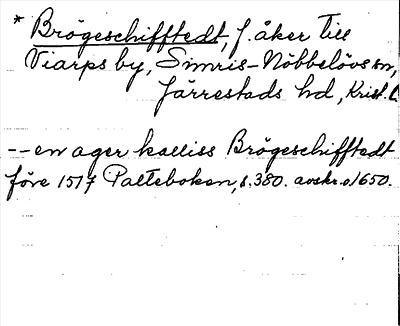 * Brögeschifftedt, f. åker till
Viarps by, Simris-Nöbbelövs sn,
Järrestads hd, Krist. l.
-- en ager kalliss Brögeschifftedt
före 1517 Palteboken, s. 380. avskr. o 1650.